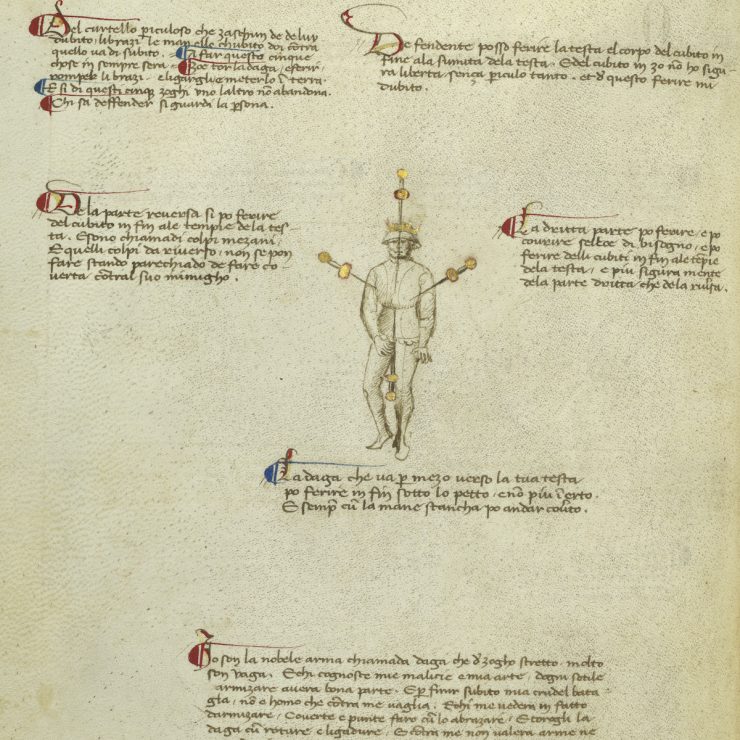 Del cortello piculoso che zaschun de de lur
dubito, librazi le man elle chubito doi contra
quello va di subito. A far questo cinque
chose in sempre sera. Zoe tor la daga, e ferir,
romper li brazi, e ligargli e meterlo in terra.
E si di questi cinque zoghi uno laltro no abandona.
Chi sa deffender si guardi la psona.
De fendente posso ferire la testa el corpo del cubito in
fine ala sumita dela testa. E del cubito in zo no ho sigu-
ra liberta senza piculo tanto. et d questo ferire mi
dubito.
De la parte reversa si po ferire
del cubito in fin ale tempie de la tes-
ta. E sono chiamadi colpi mezani.
E quelli colpi da riverso, non se pon
fare stando parechiado de fare co-
verta contra l suo inimigho.
La dritta parte po ferire, e po
covrire se l'ee di bisogno, e po
ferire delli cubiti in fin ale tepie
dela testa, e piu sigura mente
dela parte dritta che dela rversa.
La daga che va p mezo verso la tua testa
po ferire in fin sotto lo petto, e no piu in erto.
E semp cu la mane stancha po andar coverto.
Io son la nobele arma chiamada daga che d zogho stretto, molto
son vaga. E chi cognosce mie malicie e mia arte, dogni sotile
armizare avera bona parte. E p finir subito mia crudel bata
gla, no e homo che contra me vaglia. E chi me vedera in fatto
darmizare, Coverte e punte faro cu lo abrazare, E torogli la
daga cu roture e ligadure, E contra me non valera arme ne